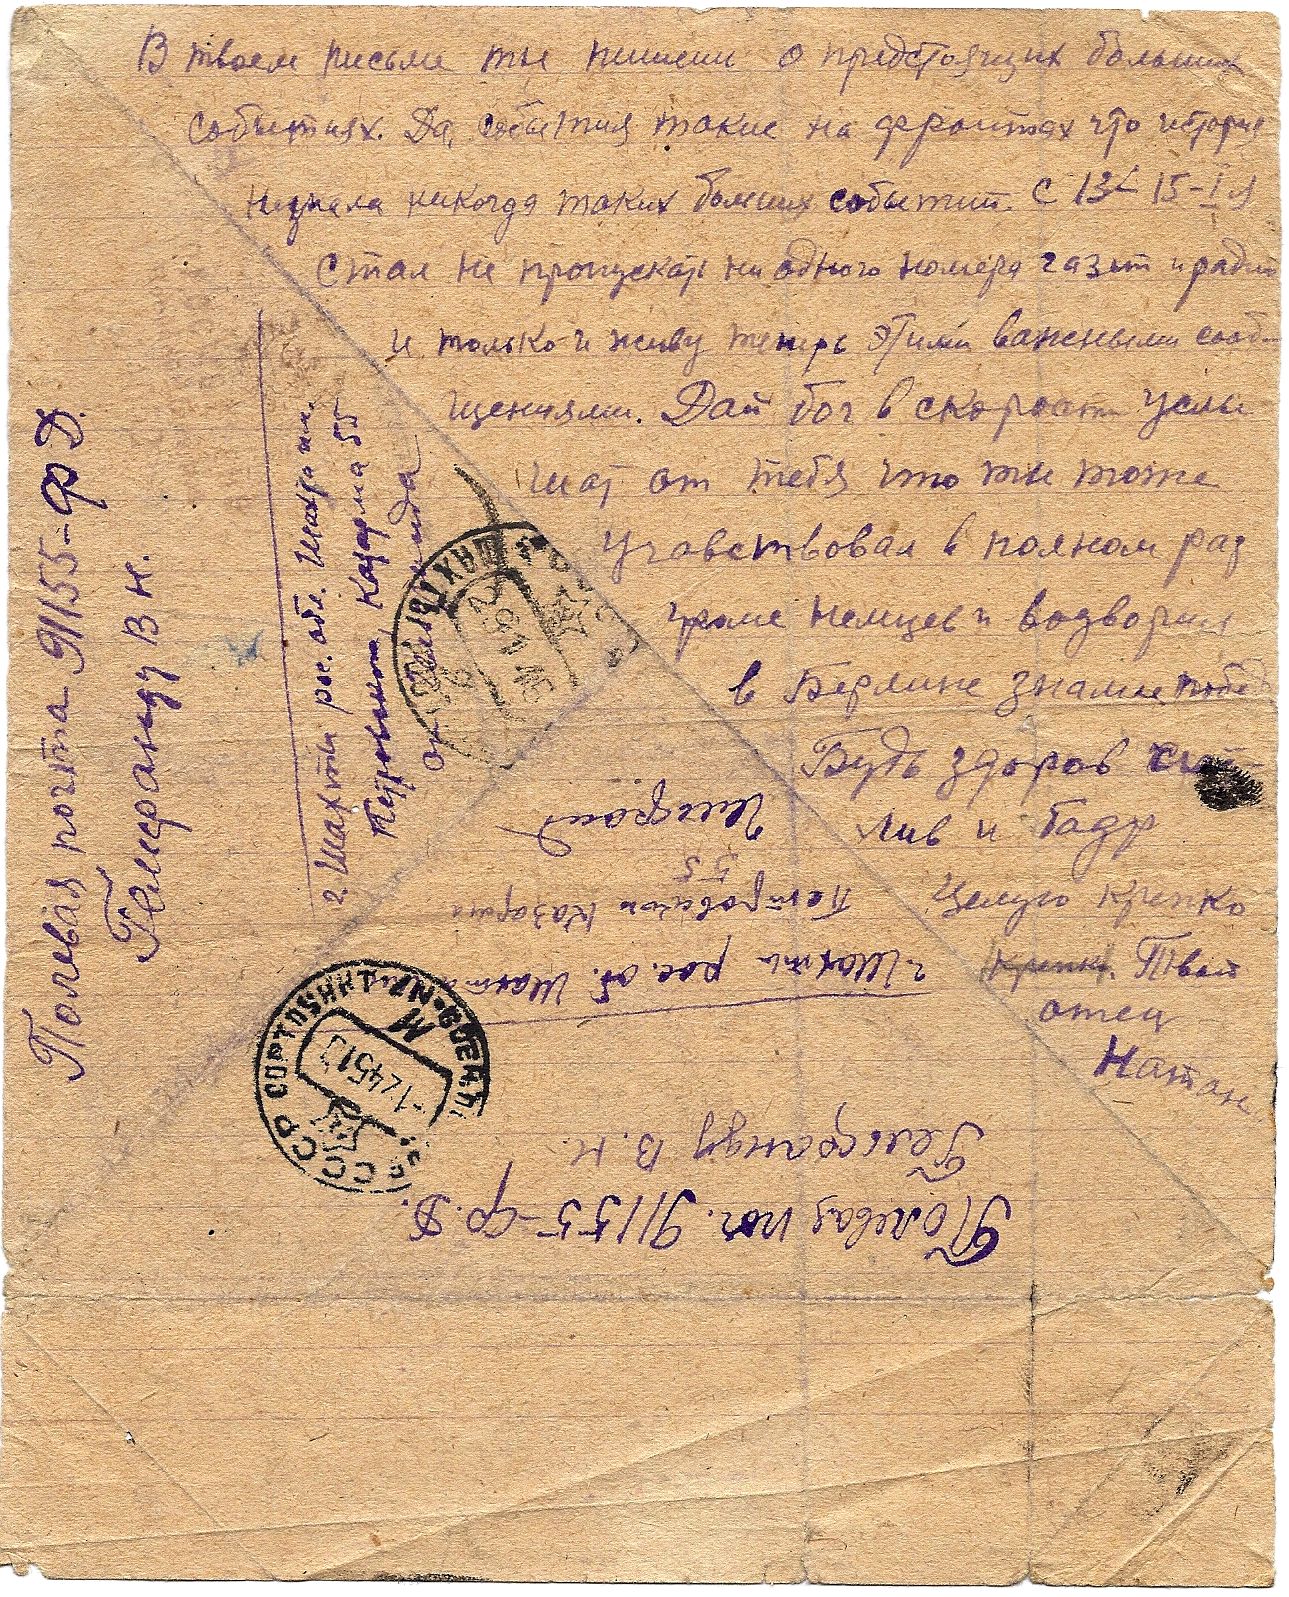 В твоем письме ты пишеш о предстоящих больших
событиях. Да, события такие на фронтах что история
незнала никогда таких больших событий. С 13/15-I я
стал не пропускать ни одного номера газет и радио
и только и живу теперь этими важными сооб-
щениями. Дай бог в скорости услы
шат от тебя что ты тоже
учавствовал в полном раз
громе немцев и водворил
в Берлине знамие побед
Будь здоров счаст
лив и бодр
Целую крепко
крепк. Твой
отец
Натан
Полевая почта 91155-ф Д.
Гельфанду В Н.
г. Шахты рос. обл. Шахта им.
Петровского, Казарма 55
СССР
Полевая поч. 91155-ф. Д.
Гельфанду В. Н.
г. Шахты рос. об. Шахта
Петровского Казарма
55
Гельфанд
СССР СОРТОВ
-1 2 45